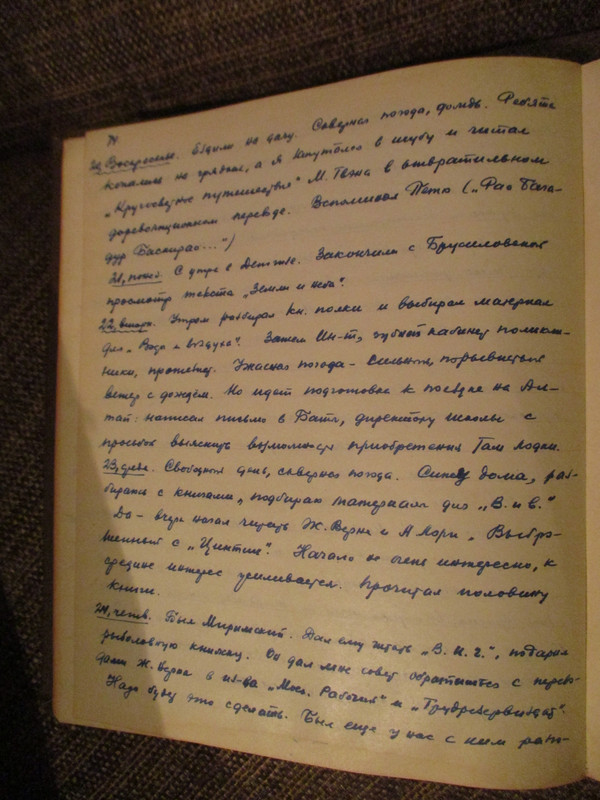 74
20, Воскресенье. Ездили на дачу. Скверная погода, дождь. Ребята
копались на грядках, а я закутался в шубу и читал
„Кругосветное путешествие" М. Твэна в отвратительном
дореволюционном переводе. Вспоминал Петю („Рао Бага-
дур Баскирао...")
21, понед. С утра в Детгизе. Закончили с Брусиловской
просмотр текста „Земли и неба".
22, вторн. Утром разбирал кн. полки и выбирал материал
для „Вода и воздуха". Затем Ин-т, зубной кабинет поликли-
ники, протезист. Ужасная погода - сильный, порывистый
ветер с дождём. Но идет подготовка к поездке на Ал-
тай: написал письмо в Балы, директору школы с
просьбой выяснить возможность приобретения там лодки.
23, среда. Свободный день, скверная погода. Сижу дома, раз-
бираюсь с книгами, подбираю материал для „В. и в."
Да - вчера начал читать Ж. Верна и А. Лори „Выбро-
шенный с „Цинтии". Начало не очень интересно, к
средине интерес усиливается. Прочитал половину
книги.
24, четв. Был Миримский. Дал ему читать „В. и ч.", подарил
рыболовную книжку. Он дал мне совет обратиться с перево-
дами Ж. Верна в из-ва „Моск. Рабочий" и „Трудрезервиздат".
Надо будет это сделать. Был еще у нас с ним раз-